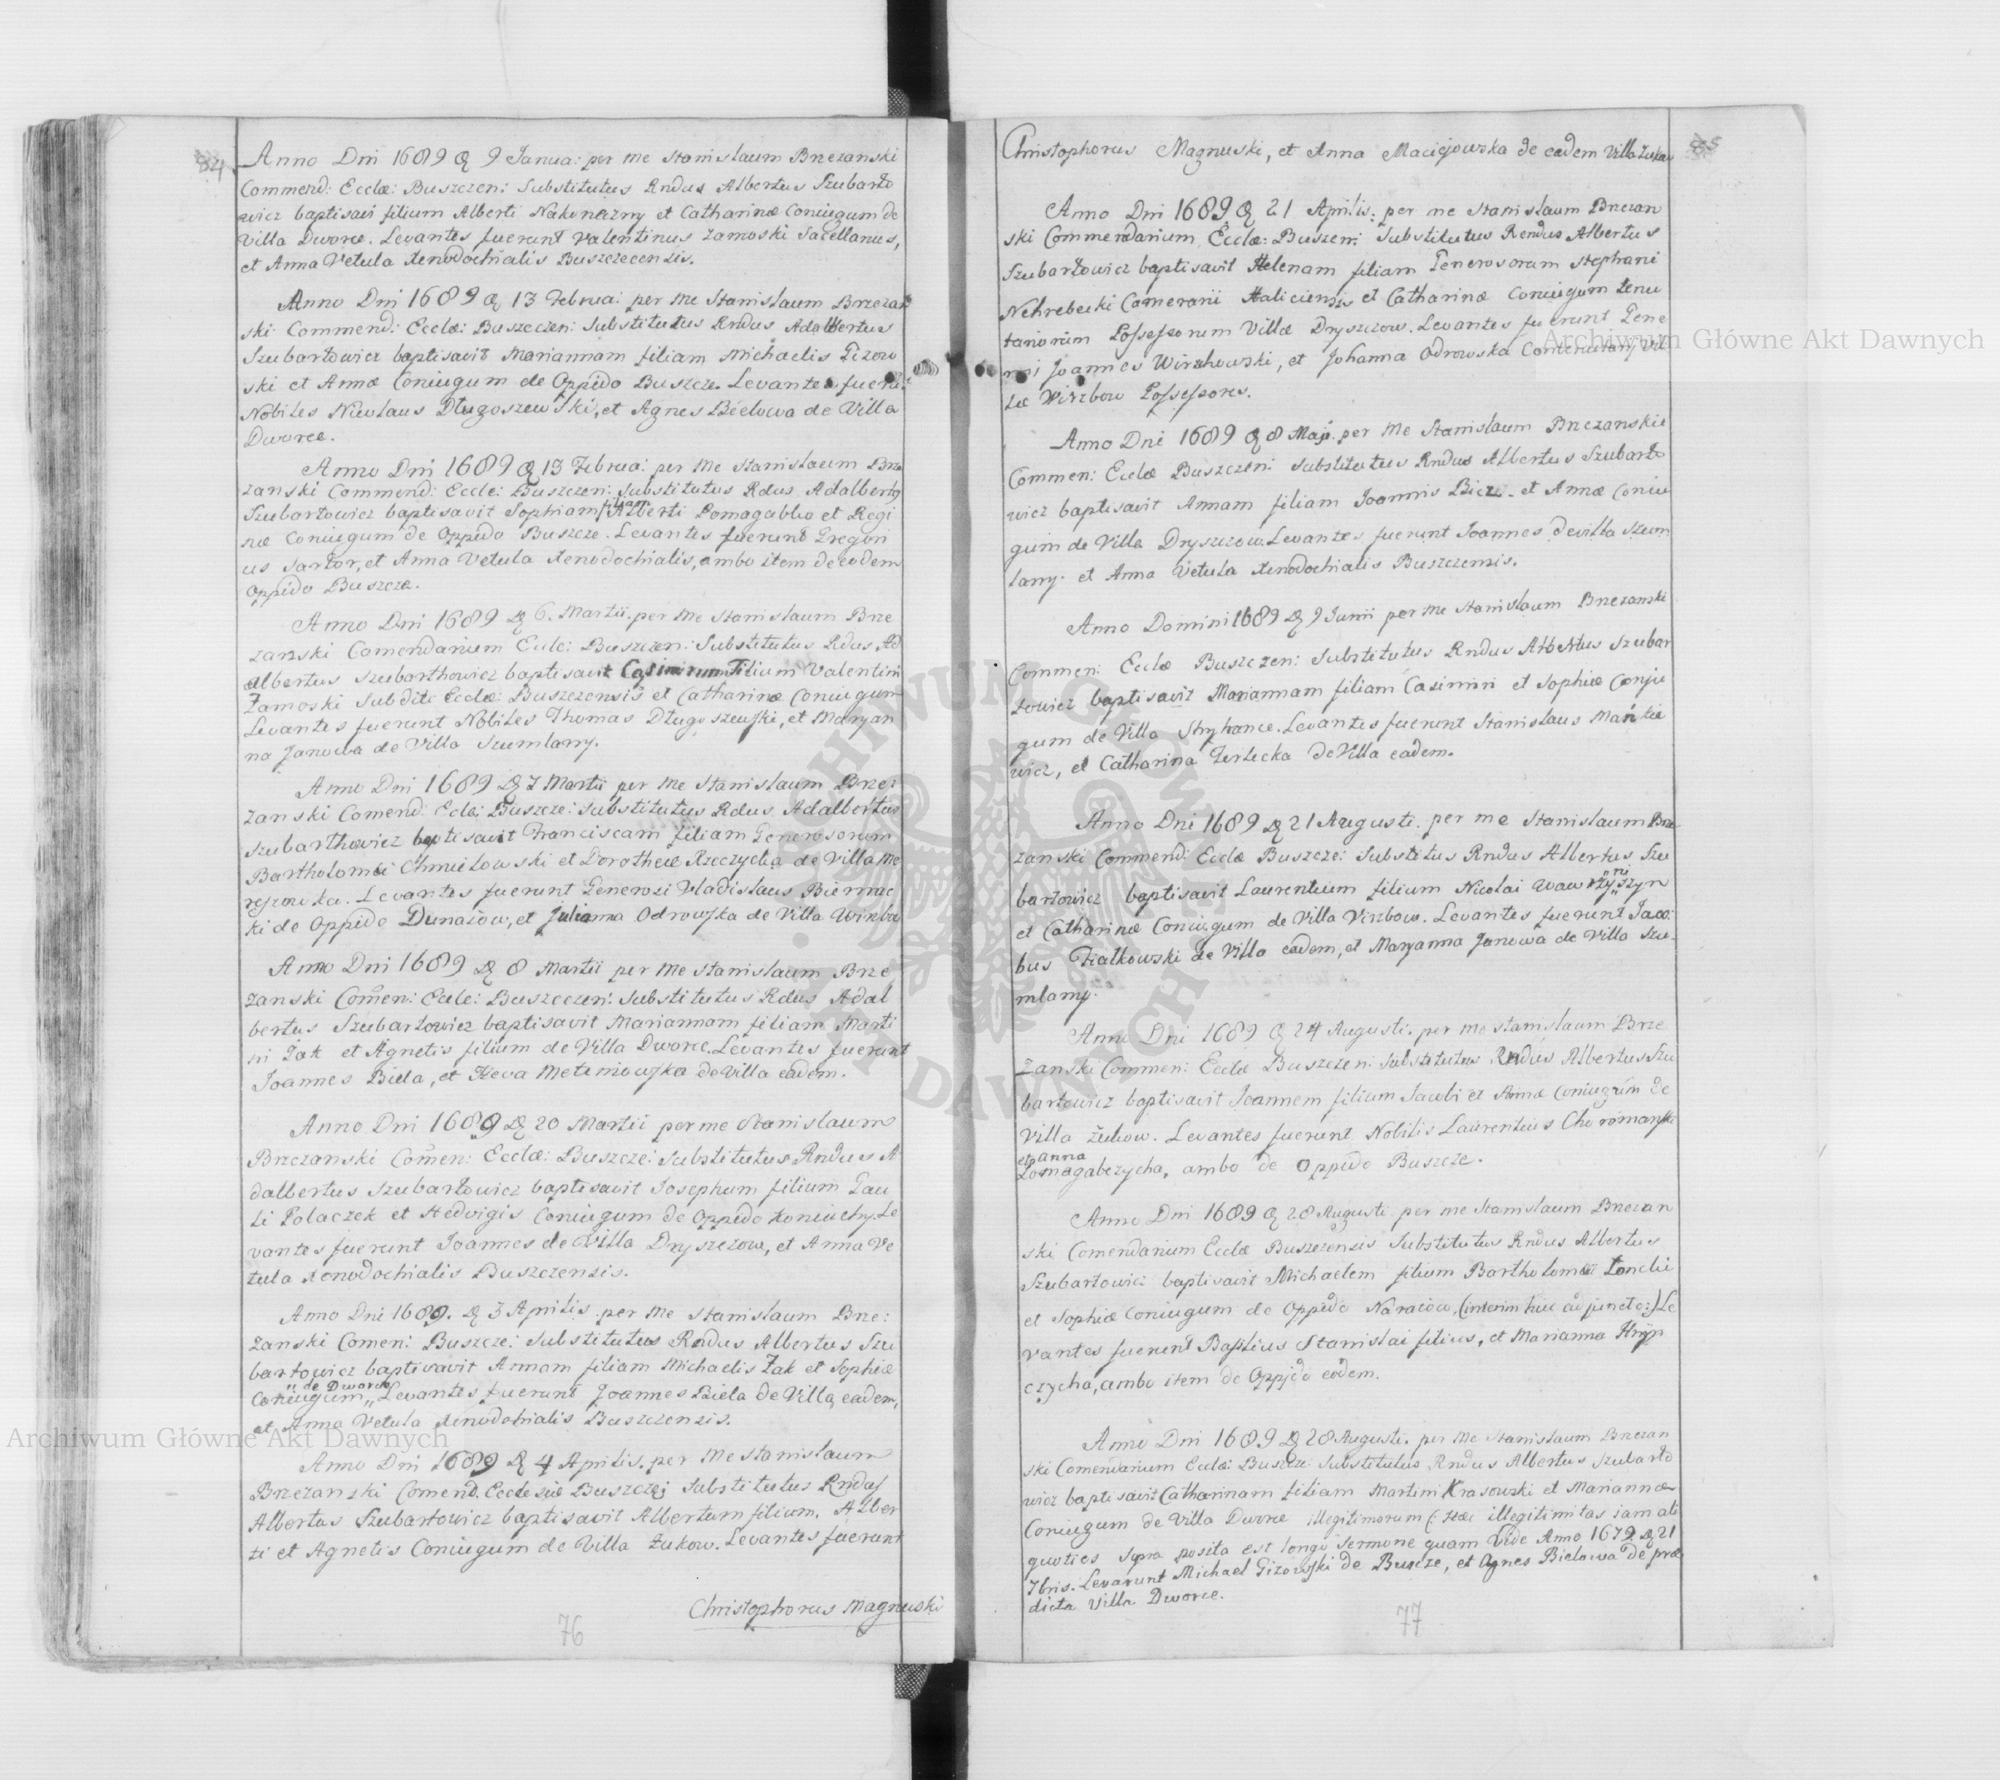 84
Anno Dni 1689 9 Janua: per me Stanislaum Brzezanski
Commend: Ecclæ: Buszczen: Substitutus Rndus Albertus Szubarto
wicz baptisavi filium Alberti Nakoneczny et Catharinæ Coniugum de
Villa Dworce. Levantes fuerunt Valentinus Zamoski Sacellanus,
et Anna Vetula Xenodochialis Buszczecensis.
Anno Dni 1689 13 Februa: per me Stanislaum Brzezan
ski Commend: Ecclæ: Buszczen: Substitutus Rndus Adalbertus
Szubartowicz baptisavit Mariannam filiam Michaelis Gizow
ski et Annæ Coniugum de Oppido Buszcze. Levantes fuerunt
Nobiles Nicolaus Długoszewski, et Agnes Bielowa de Villa
Dworce.
Anno Dni 1689 13 Februa: per me Stanislaum Brze
zanski Commend: Eccle: Buszczen: Substitutus Rdus Adalbertus
Szubartowicz baptisavit Sophiam filiam Alberti Pomagabko et Regi
næ Coniugum de Oppido Buszcze. Levantes fuerunt Gregori
us Sartor, et Anna Vetula Xenodochialis, ambo item de eodem
Oppido Buszcze.
Anno Dni 1689 6. Martii. per me Stanislaum Brze
zanski Comendarium Ecclæ: Buszczen: Substitutus Rdus Ad
albertus Szubarthowicz baptisavit Casimirum Filium Valentini
Zamoski Subditi Ecclæ: Buszczensis et Catharinæ Coniugum
Levantes fuerunt Nobiles Thomas Długoszewski, et Maryan
na Janowa de Villa Szumlany.
Anno Dni 1689 7 Martii per me Stanislaum Brze
zanski Comend: Ecclæ: Buszcze: Substitutus Rdus Adalbertus
Szubarthowicz baptisavit Franciscam filiam Generosorum
Bartholomæi Chmielowski et Dorotheæ Rzeczycka de Villa Me
reszowka. Levantes fuerunt Generosi Vladislaus Biernac
ki de Oppido Dunaiow, et Julianna Odrowska de Villa Wirzbo
Anno Dni 1689 8 Martii per me Stanislaum Brze
zanski Comen: Eccle: Buszczen: Substitutus Rdus Adal
bertus Szubartowicz baptisavit Mariannam filiam Marti
ni Zak et Agnetis filium de Villa Dworce. Levantes fuerunt
Joannes Biela, et Heva Meteniowska de Villa eadem.
Anno Dni 1689 20 Martii per me Stanislaum
Brzezanski Comen: Ecclæ: Buszcze: Substitutus Rndus A
dalbertus Szubartowicz baptisavit Josephum filium Pau
li Polaczek et Hedvigis Coniugum de Oppido Koniuchy. Le
vantes fuerunt Joannes de Villa Dryszczow, et Anna Ve
tula Xenodochialis Buszczensis.
Anno Dni 1689. 3 Aprilis per me Stanislaum Brze:
zanski Comen: Buszcze: Substitutus Rndus Albertus Szu
bartowicz baptisavit Annam filiam Michaelis Zak et Sophiæ
Coniugum de Dworce Levantes fuerunt Joannes Biela de Villa eadem,
et Anna Vetula Xenodohialis Buszczensis.
Anno Dni 1689 4 Aprilis. per me Stanislaum
Brzezanski Comend. Ecclesiæ Buszczej Substitutus Rndus
Albertus Szubartowicz baptisavit Albertum filium. Alber
ti et Agnetis Coniugum de Villa Zukow. Levantes fuerunt
Christophorus Magnuski
76
85
Christophorus Magnuski, et Anna Maciejowska de eadem Villa Zukow
Anno Dni 1689 21 Aprilis. per me Stanislaum Brzezan
ski Commendarium Ecclæ: Buszen: Substitutus Rendus Albertus
Szubartowicz baptisavit Helenam filiam Generosorum Stephani
Nehrebecki Comerarii Haliciensis et Catharinæ Coniugum tenu
tariorum Possessorum Villæ Dryszczow. Levantes fuerunt Gene
rosi Joannes Wirzhowski, et Johanna Odrowska
læ Wirzbow Possessores.
Anno Dni 1689 8 Maji. per me Stanislaum Brzezanski
Commen: Ecclæ Buszczen: Substitutus Rndus Albertus Szubarto
wicz baptisavit Annam filiam Joannis Bicz. et Annæ Coniu
gum de Villa Dryszczow. Levantes fuerunt Joannes de Villa Szum
lany. et Anna Vetula Xenodochialis Buszczensis.
Anno Domini 1689 9 Junii per me Stanislaum Brzezanski
Commen: Ecclæ Buszczen: Substitutus Rndus Albertus Szubar
towicz baptisavit Mariannam filiam Casimiri et Sophiæ Conju
gum de Villa Stryhance. Levantes fuerunt Stanislaus Mańkie
wicz, et Catharina Terlecka de Villa eadem.
Anno Dni 1689 21 Augusti. per me Stanislaum Brze
zanski Commend: Ecclæ Buszcze: Substitus Rndus Albertus Szu
bartowicz baptisavit Laurentium filium Nicolai Wawrzyszyn
et Catharinæ Coniugum de Villa Virzbow. Levantes fuerunt Jaco:
bus Fiałkowski de Villa eadem, et Maryanna Janowa de Villa Szu.
mlany.
Anno Dni 1689 24 Augusti. per me Stanislaum Brze
zanski Commen: Ecclæ Buszczen: Substitutus Rndus Albertus Szu
bartowicz baptisavit Joannem filium Jacobi et Annæ Coniugum de
Villa Żukow. Levantes fuerunt Nobilis Laurentius Choromanski
et Anna
Pomagabczycha, ambo de Oppido Buszcze.
Anno Dni 1689 28 Augusti per me Stanislaum Brzezan
ski Comendarium Ecclæ Buszczensis Substitutus Rndus Albertus
Szubartowicz baptisavit Michaelem filium Bartholomæi Lonchi
et Sophiæ Coniugum de Oppido Naraiow, (interim huc adjuncto:) Le
vantes fuerunt Basilius Stanislai filius, et Marianna Hryn
czycha, ambo item de Oppido eodem.
Anno Dni 1689 28 Augusti. per me Stanislaum Brzezan
ski Comendarium Ecclæ: Buszcze: Substitutus Rndus Albertus Szubarto
wicz baptisavit Catharinam filiam Martini Krasowski et Mariannæ
Coniugum de Villa Dworce illegitimorum (: Hæc illegitimitas iam ali
quoties supra posita est longo Sermone quam Vide Anno 1679 21
7bris. Levarunt Michael Gizowski de Buszcze, et Agnes Bielowa de præ
dicta Villa Dworce.
77
Archiwum Główne Akt Dawnych
Archiwum Główne Akt Dawnych
ARCHIWUM GŁÓWNE AKT DAWNYCH